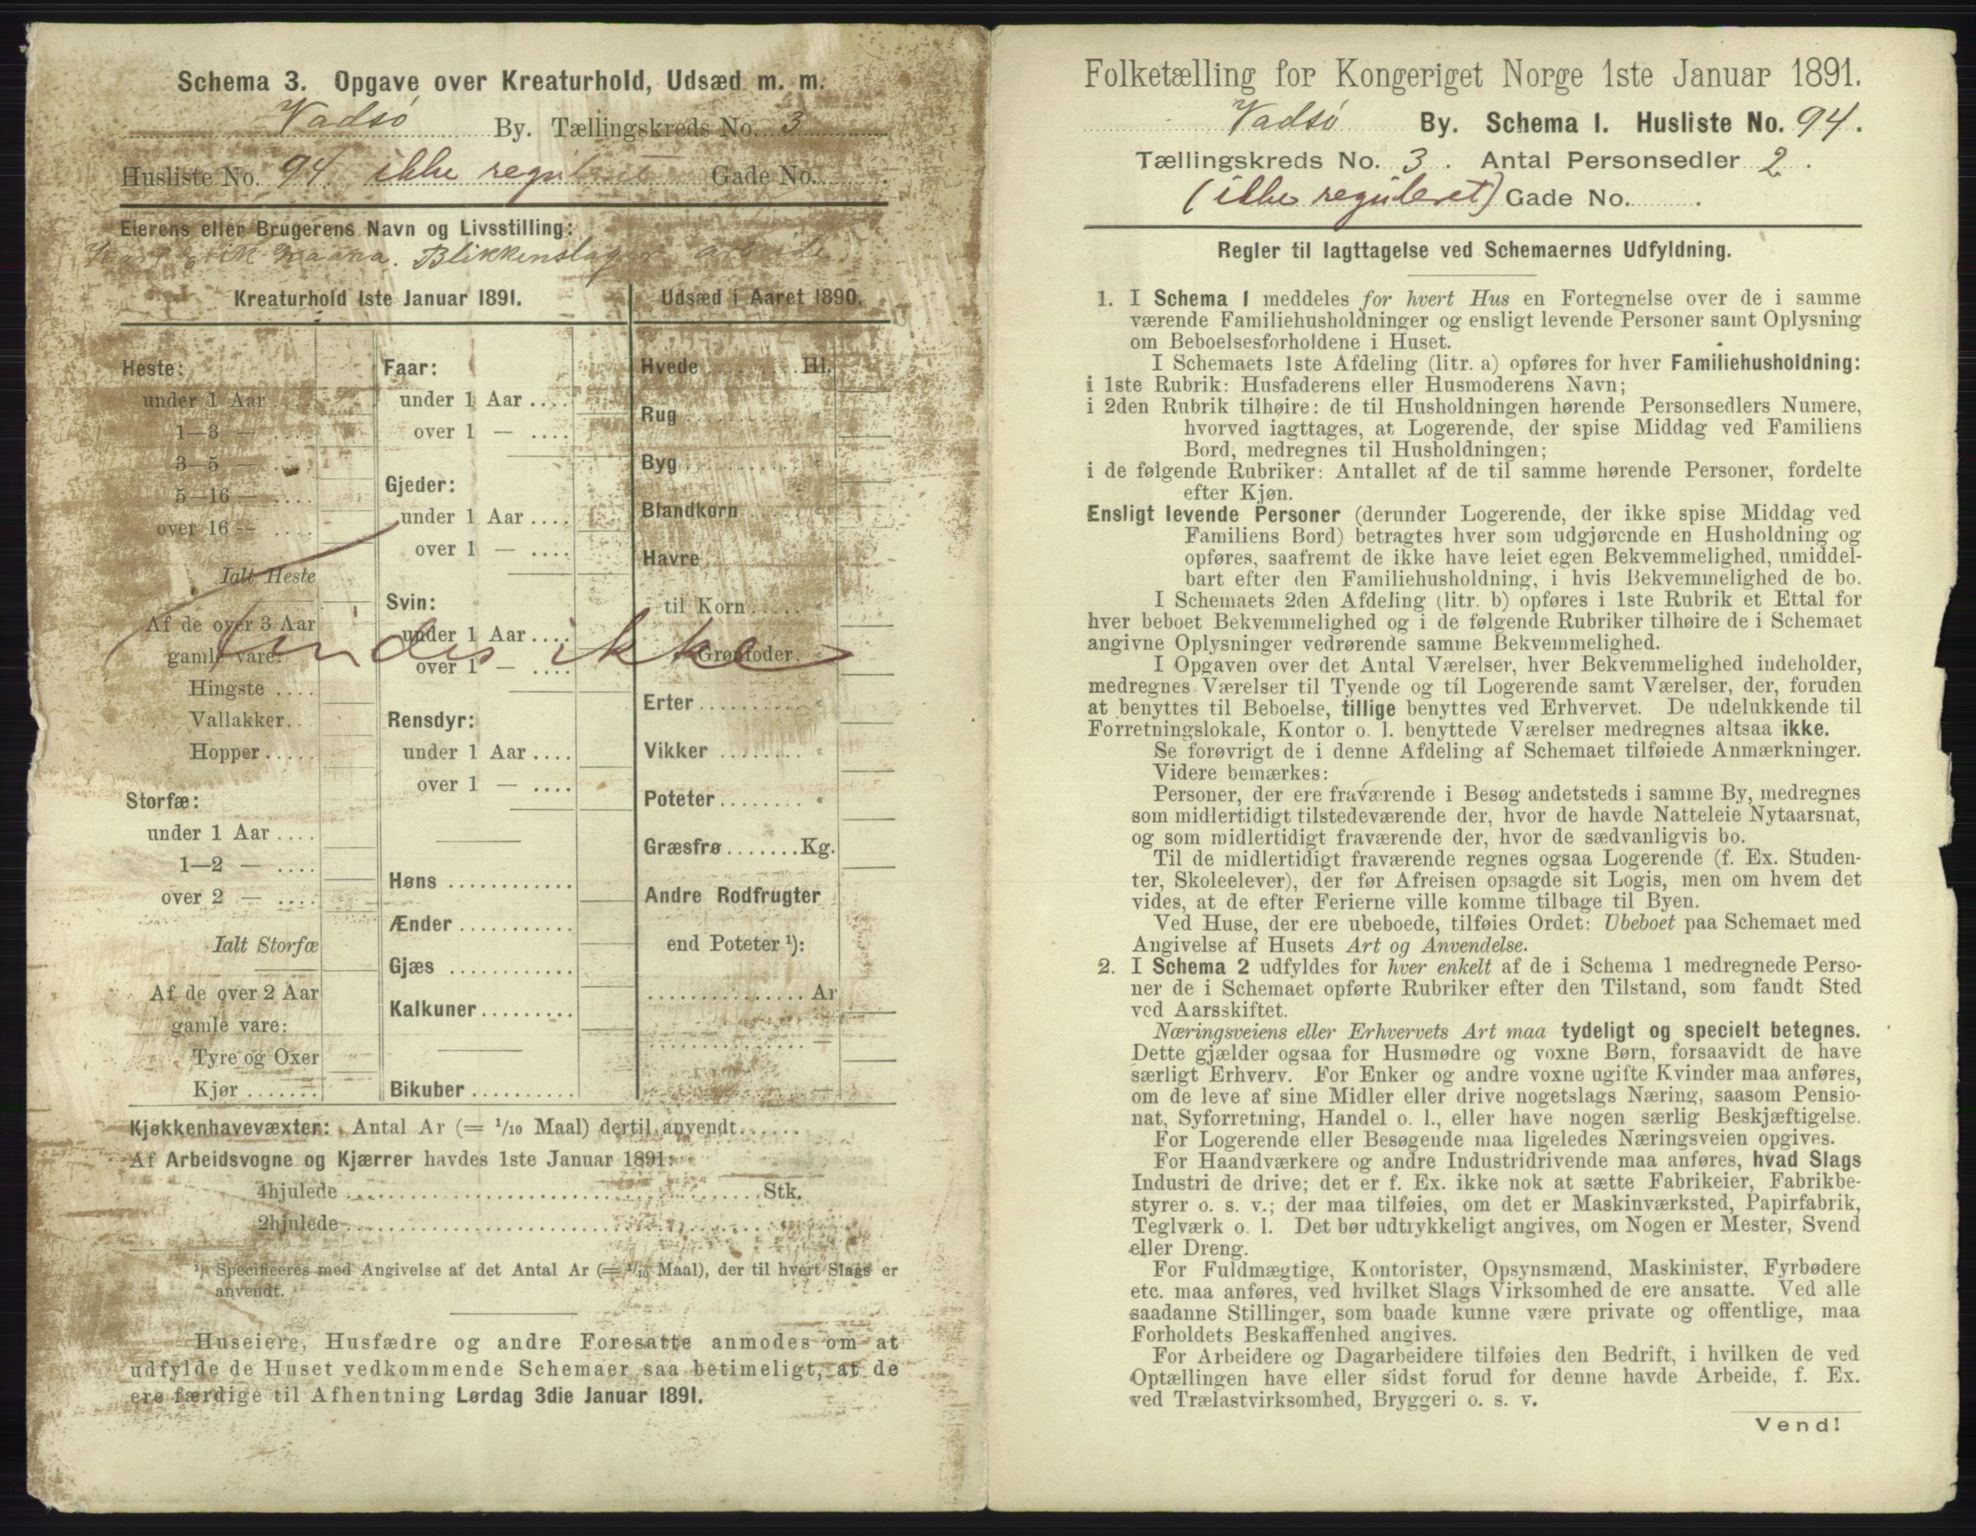 Schema 3. Opgave over Kreaturhold, Udsæd m. m.
Vadsö By. Tællingskreds No. 3
Husliste No. 94. ikke reguleret Gade No.
Eierens eller Brugerens Navn og Livsstilling:
Blikkenslager arbeide
Kreaturhold 1ste Januar 1891.
Heste:
under 1 Aar ....
1—3 — ....
3—5 — ....
5—16 — ....
over 16 — ....
Ialt Heste
Af de over 3 Aar
gamle vare:
Hingste ....
Vallakker..
Hopper .....
Storfæ:
under 1 Aar ....
1—2 — ....
over 2 — ....
Ialt Storfæ
Af de over 2 Aar
gamle vare:
Tyre og Oxer
Kjør .......
Faar:
under 1 Aar ....
over 1 — ....
Gjeder:
under 1 Aar ....
over 1 — ....
Svin:
under 1 Aar ....
over 1 — ....
Rensdyr:
under 1 Aar ....
over 1 — ....
Høns ...........
Ænder ..........
Gjæs ...........
Kalkuner.........
Bikuber ..........
Udsæd i Aaret 1890.
Hvede ........ Hl.
Rug ........... "
Byg ........... "
Blandkorn ...... "
Havre
til Korn ..... "
Grønfoder. "
Erter .......... "
Vikker ......... "
Poteter ........ "
Græsfrø .......Kg.
Andre Rodfrugter
end Poteter ¹):
.............. Ar
.............. —
.............. —
findes ikke
Kjøkkenhavevæxter: Antal Ar (= 1/10 Maal) dertil anvendt......
Af Arbeidsvogne og Kjærrer havdes 1ste Januar 1891:
4hjulede ........................................Stk.
2hjulede ........................................ —
¹) Specificeres med Angivelse af det Antal Ar (= 1/10 Maal), der til hvert Slags er
anvendt.
Huseiere, Husfædre og andre Foresatte anmodes om at
udfylde de Huset vedkommende Schemaer saa betimeligt, at de
ere færdige til Afhentning Lørdag 3die Januar 1891.
Folketælling for Kongeriget Norge 1ste Januar 1891.
Vadsö By. Schema I. Husliste No. 94.
Tællingskreds No. 3. Antal Personsedler 2.
(ikke reguleret) Gade No. .
Regler til Iagttagelse ved Schemaernes Udfyldning.
1. I Schema I meddeles for hvert Hus en Fortegnelse over de i samme
værende Familiehusholdninger og ensligt levende Personer samt Oplysning
om Beboelsesforholdene i Huset.
I Schemaets 1ste Afdeling (litr. a) opføres for hver Familiehusholdning:
i 1ste Rubrik: Husfaderens eller Husmoderens Navn;
i 2den Rubrik tilhøire: de til Husholdningen hørende Personsedlers Numere,
hvorved iagttages, at Logerende, der spise Middag ved Familiens
Bord, medregnes til Husholdningen;
i de følgende Rubriker: Antallet af de til samme hørende Personer, fordelte
efter Kjøn.
Ensligt levende Personer (derunder Logerende, der ikke spise Middag ved
Familiens Bord) betragtes hver som udgjørende en Husholdning og
opføres, saafremt de ikke have leiet egen Bekvemmelighed, umiddel-
bart efter den Familiehusholdning, i hvis Bekvemmelighed de bo.
I Schemaets 2den Afdeling (litr. b) opføres i 1ste Rubrik et Ettal for
hver beboet Bekvemmelighed og i de følgende Rubriker tilhøire de i Schemaet
angivne Oplysninger vedrørende samme Bekvemmelighed.
I Opgaven over det Antal Værelser, hver Bekvemmelighed indeholder,
medregnes Værelser til Tyende og til Logerende samt Værelser, der, foruden
at benyttes til Beboelse, tillige benyttes ved Erhvervet. De udelukkende til
Forretningslokale, Kontor o. l. benyttede Værelser medregnes altsaa ikke.
Se forøvrigt de i denne Afdeling af Schemaet tilføiede Anmærkninger.
Videre bemærkes:
Personer, der ere fraværende i Besøg andetsteds i samme By, medregnes
som midlertidigt tilstedeværende der, hvor de havde Natteleie Nytaarsnat,
og som midlertidigt fraværende der, hvor de sædvanligvis bo.
Til de midlertidigt fraværende regnes ogsaa Logerende (f. Ex. Studen-
ter, Skoleelever), der før Afreisen opsagde sit Logis, men om hvem det
vides, at de efter Ferierne ville komme tilbage til Byen.
Ved Huse, der ere ubeboede, tilføies Ordet: Ubeboet paa Schemaet med
Angivelse af Husets Art og Anvendelse.
2. I Schema 2 udfyldes for hver enkelt af de i Schema 1 medregnede Perso-
ner de i Schemaet opførte Rubriker efter den Tilstand, som fandt Sted
ved Aarsskiftet.
Næringsveiens eller Erhvervets Art maa tydeligt og specielt betegnes.
Dette gjælder ogsaa for Husmødre og voxne Børn, forsaavidt de have
særligt Erhverv. For Enker og andre voxne ugifte Kvinder maa anføres,
om de leve af sine Midler eller drive nogetslags Næring, saasom Pensio-
nat, Syforretning, Handel o. l., eller have nogen særlig Beskjæftigelse.
For Logerende eller Besøgende maa ligeledes Næringsveien opgives.
For Haandværkere og andre Industridrivende maa anføres, hvad Slags
Industri de drive; det er f. Ex. ikke nok at sætte Fabrikeier, Fabrikbe-
styrer o. s. v.; der maa tilføies, om det er Maskinværksted, Papirfabrik,
Teglværk o. l. Det bør udtrykkeligt angives, om Nogen er Mester, Svend
eller Dreng.
For Fuldmægtige, Kontorister, Opsynsmænd, Maskinister, Fyrbødere
etc. maa anføres, ved hvilket Slags Virksomhed de ere ansatte. Ved alle
saadanne Stillinger, som baade kunne være private og offentlige, maa
Forholdets Beskaffenhed angives.
For Arbeidere og Dagarbeidere tilføies den Bedrift, i hvilken de ved
Optællingen have eller sidst forud for denne havde Arbeide, f. Ex.
ved Trælastvirksomhed, Bryggeri o. s. v.
Vend!